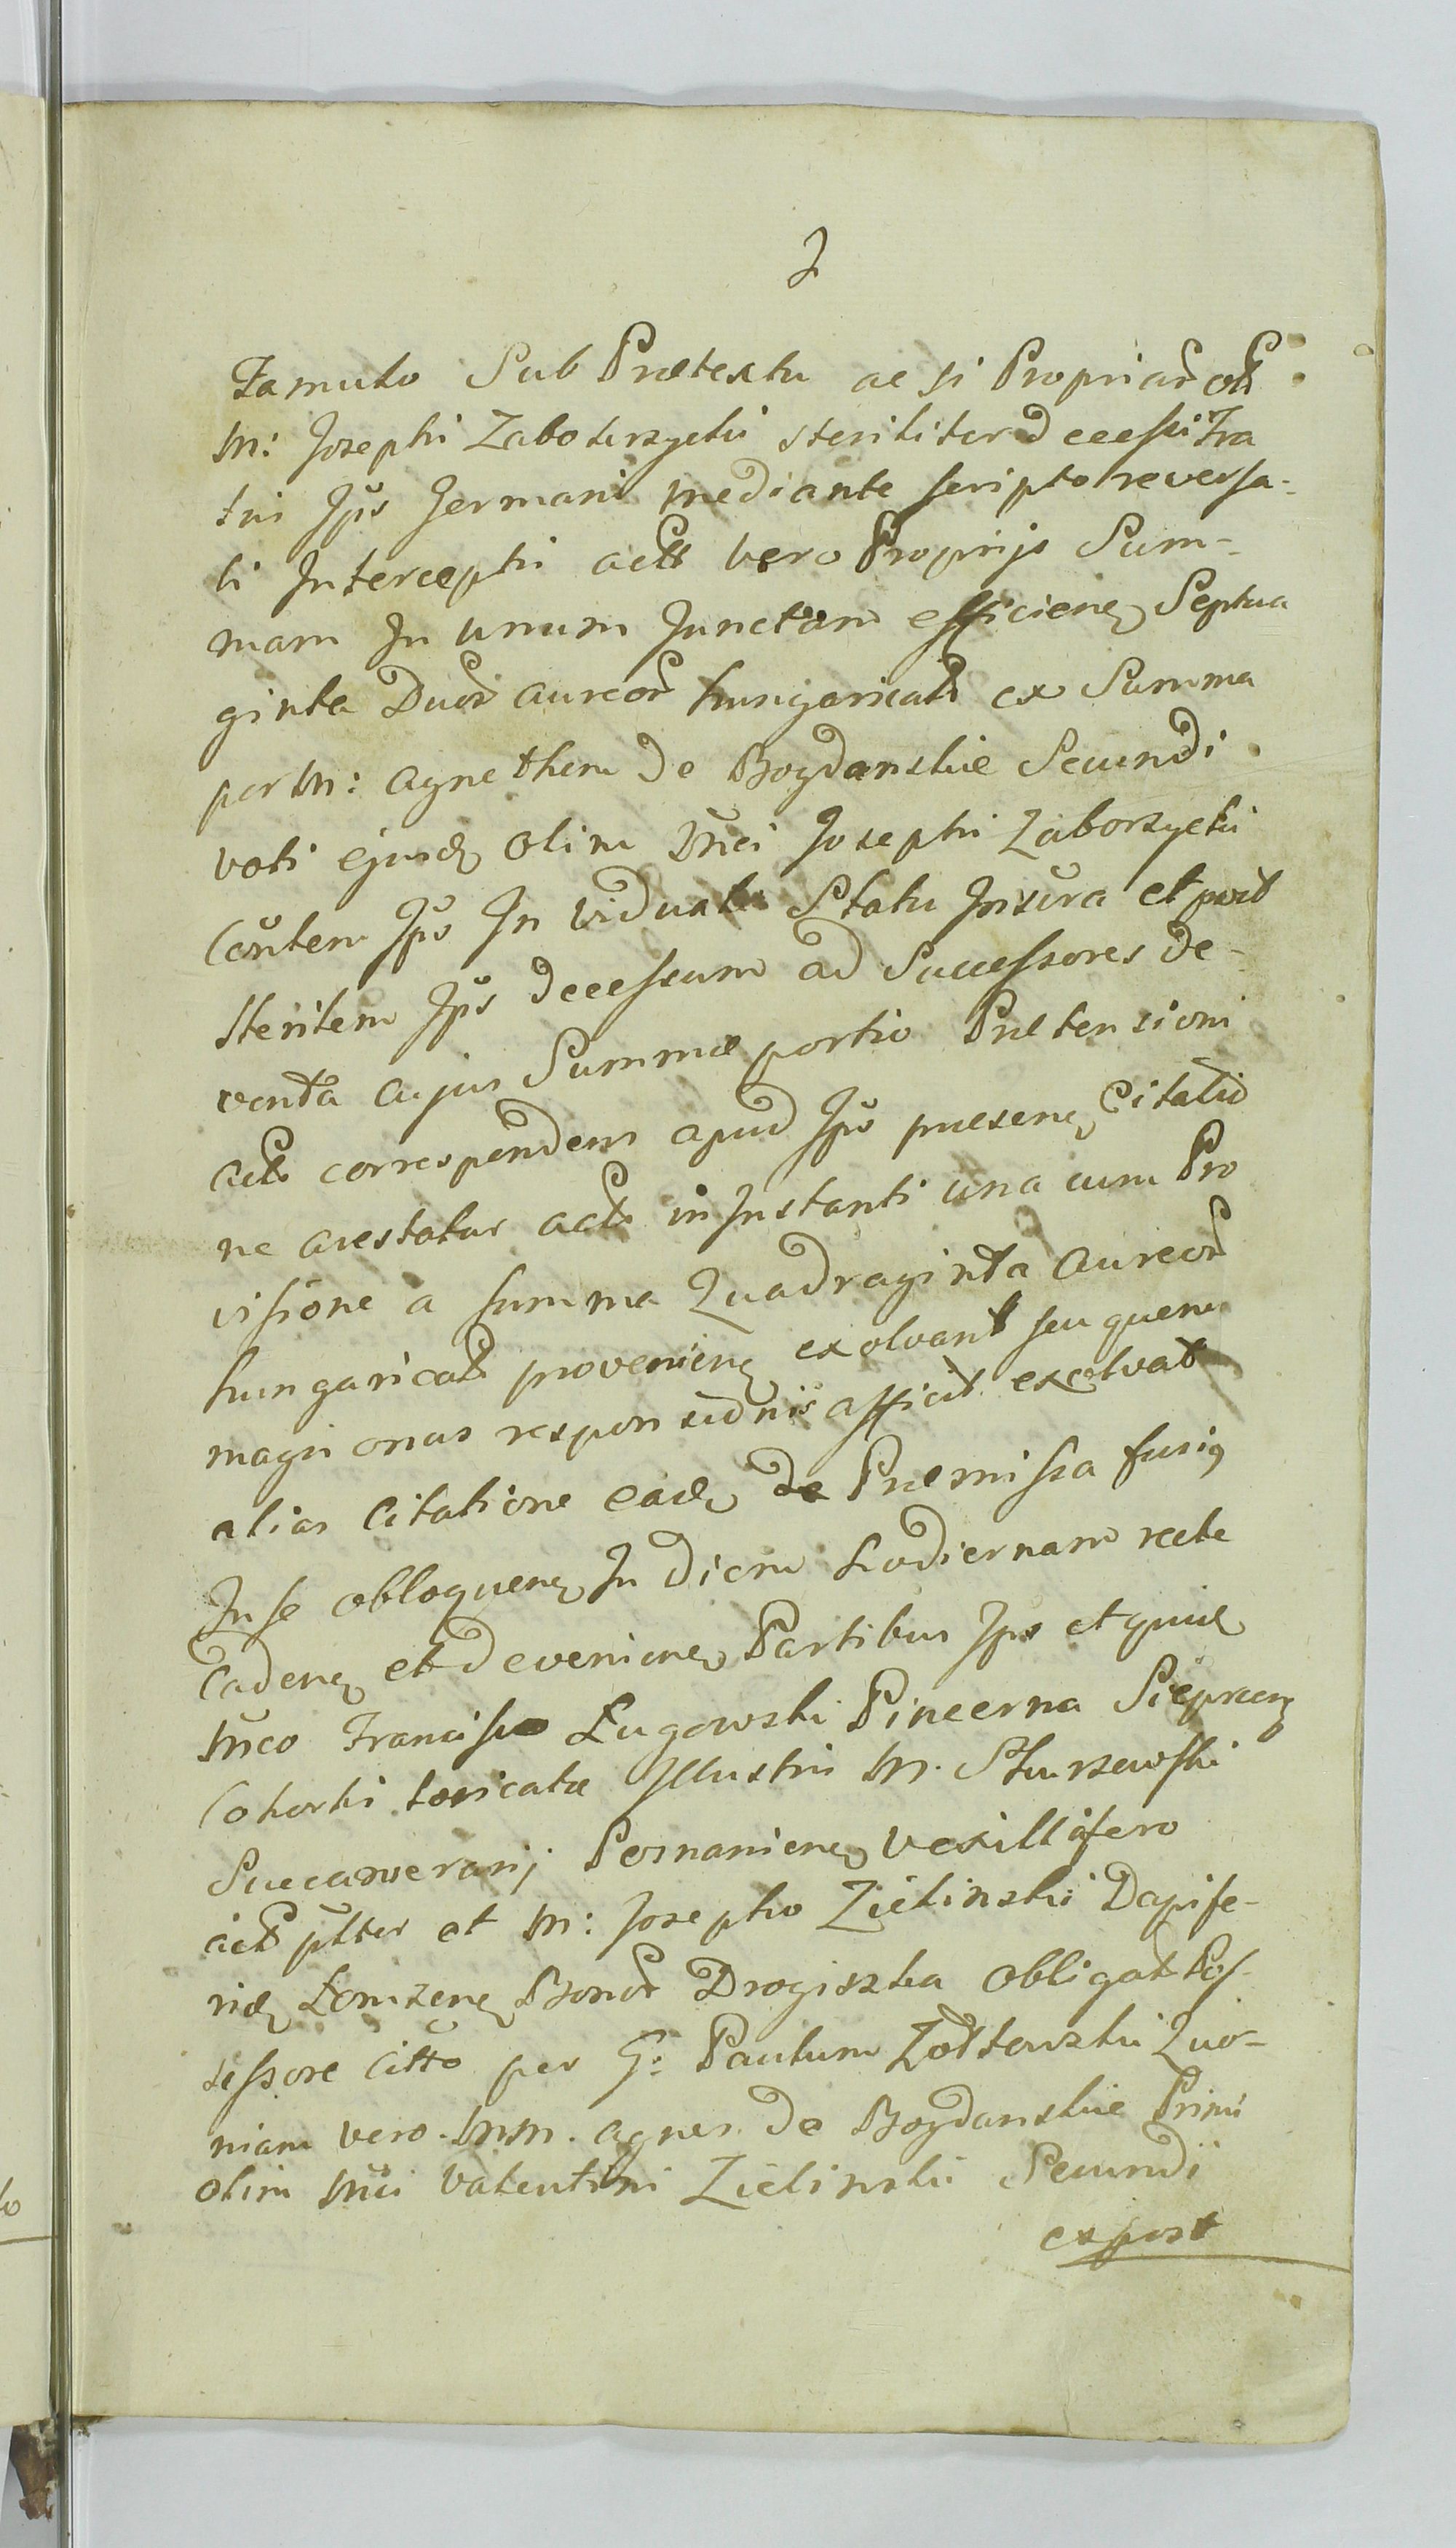 2
Famulo Sub Prætextu ac si Propriar ol
M: Josephi Zaboterzycki steriliter decessi Fra
tris Jps Germani mediante scripto reversa-
li Intercepti acts vero Proprijs Sum-
mam In unum Junctam efficien Septua
ginta Duor aureor hungaricat ex Summa
per M: Agnethem de Bogdanskie Secundi
voti ejusd olim Mci Josephi Zaborzycki
Contem Jps In viduali Statu Inscra et post
Sterilem Jps decessum ad Successores de-
venta cujus Summæ portio Prætensioni
acts correspondens apud Jps præsen Citatio
ne arestatur acts in Instanti una cum Pro
visione a summa Quadraginta Aureor
hungaricat provenien exolvant seu quem
magis onus responsionis afficit exolvat
alias Citatione ead de Præmissa fusi9
In se obloquen In diem hodiernam recte
Caden et devenien Partibus Jps et quid
Mco Francisco Ługowski Pincerna Sieprcen
Cohorti loricatæ Illustris M. Skurzewski
Succamerarij Posnanien vexillifero
act plter et M: Josepho Zielinski Dapife-
rid Łomzen Bonor Drogiszka obligat Pos-
sessore citto per G: Paulum Zołtowski Quo-
niam vero MM. Agnes de Bogdanskie Primi
olim Mci Valentini Zielinski Secundi
expost